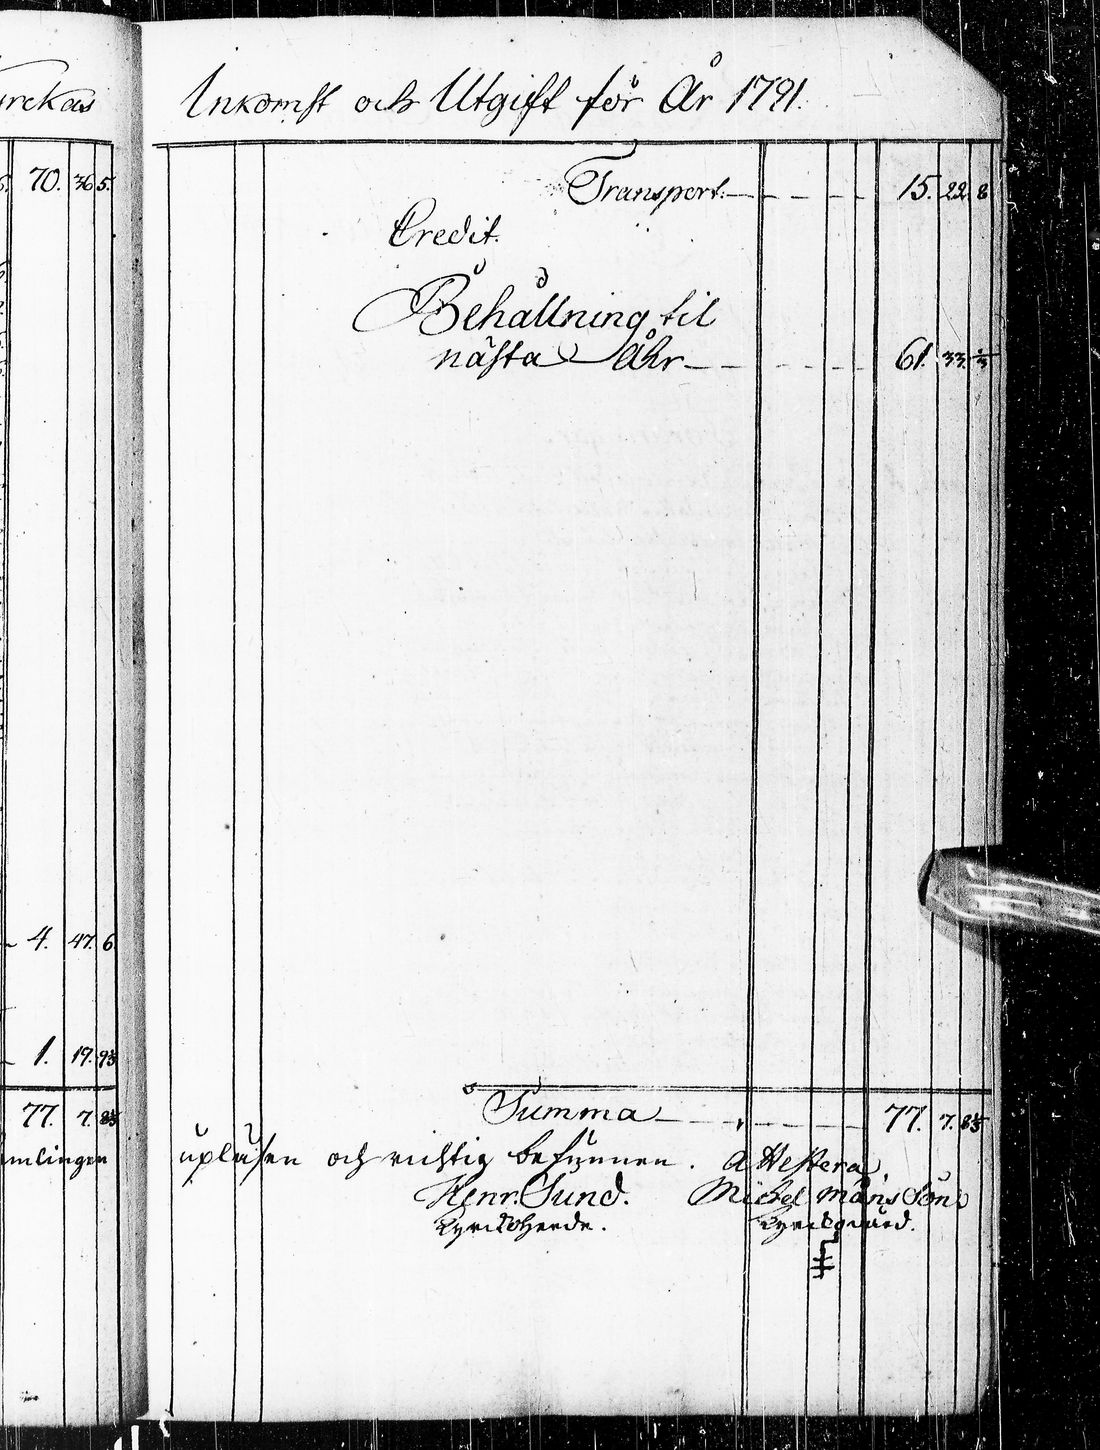 yrckas
70. 36 5.
4. 47. 6
1. 19. 9⅓
77. 7. 8⅓
amlingen
Inkomst och Utgift för År 1791.
Transport. 15. 22. 8
Credit.
Behållning til
nästa Åhr 61. 33. ⅓
Summa 77. 7. 8⅓
upläsen och richtig befunnen. Attestera
Henr. Sund. Michel Måns Son
Kyrckoherde. Kyrckovärd.